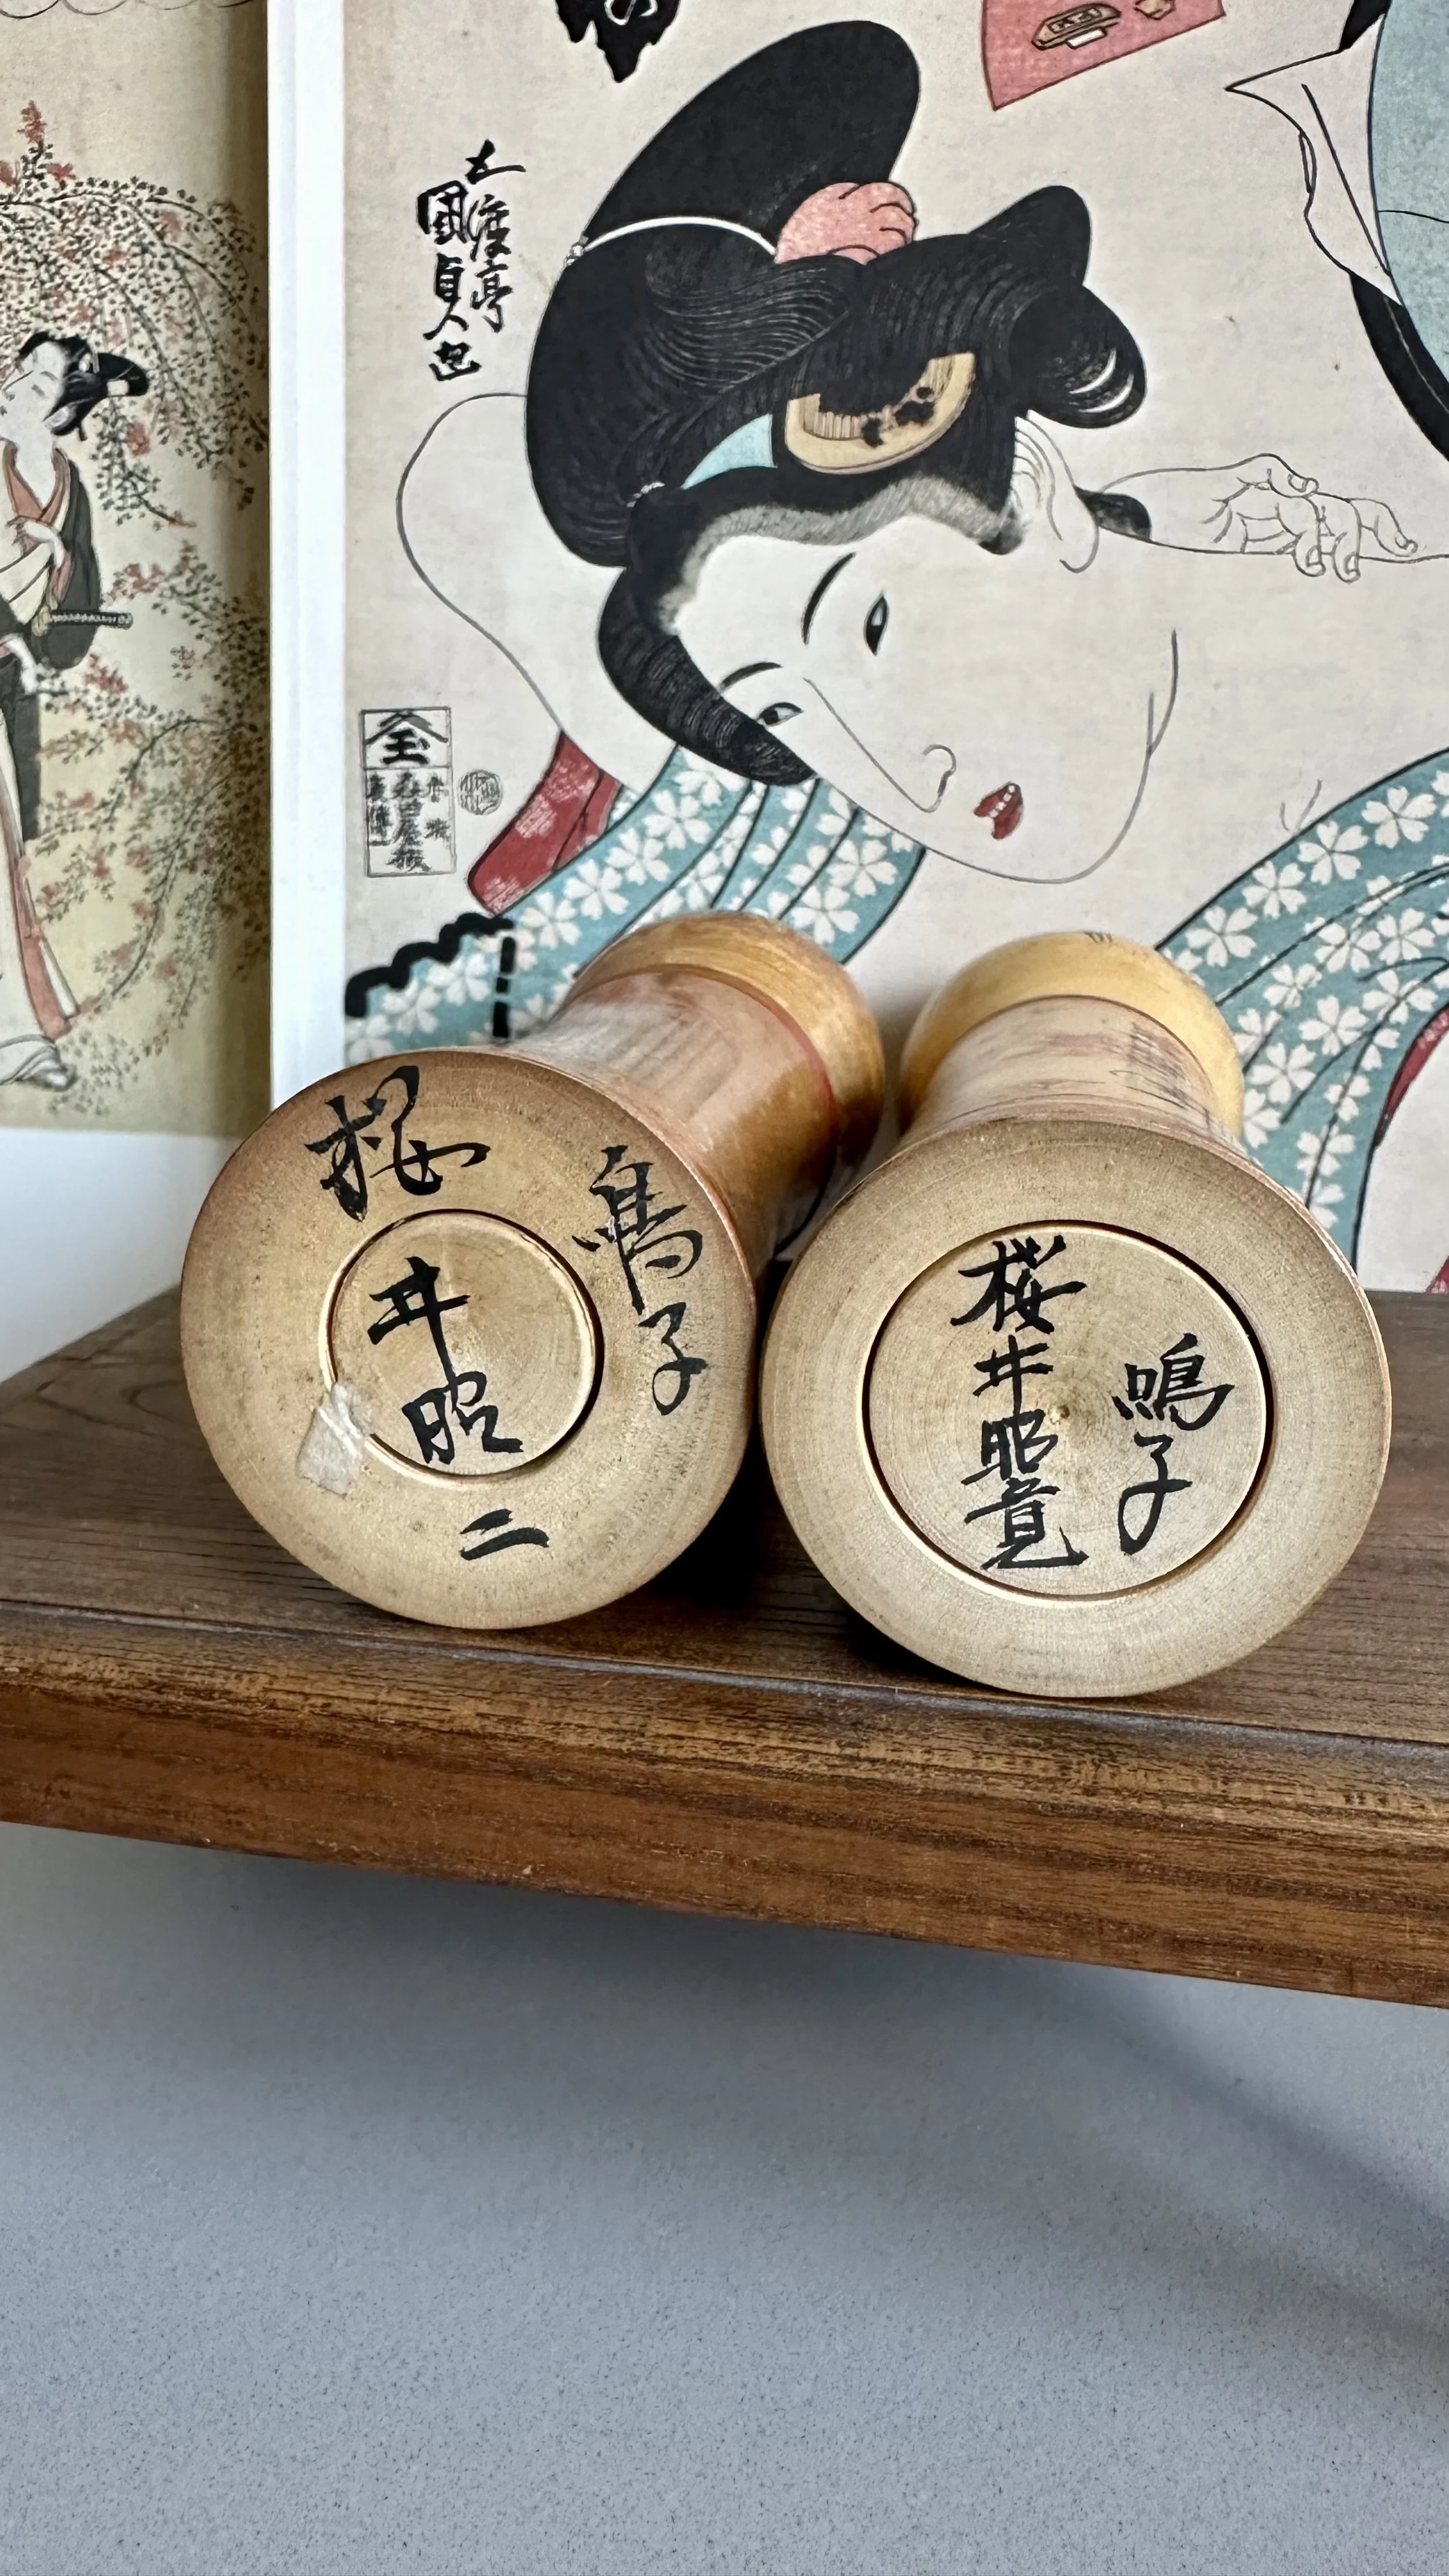 五渡亭
國貞画
鳴子
櫻井昭二
鳴子
桜井昭寛